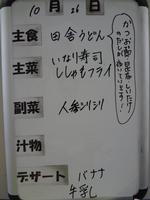 10月26日
主食 田舎うどん
主菜 いなり寿司
ししゃもフライ
副菜 人参シリシリ
汁物
デザート バナナ
牛乳
かつお節・昆布・しいたけ
のだしが効いています!